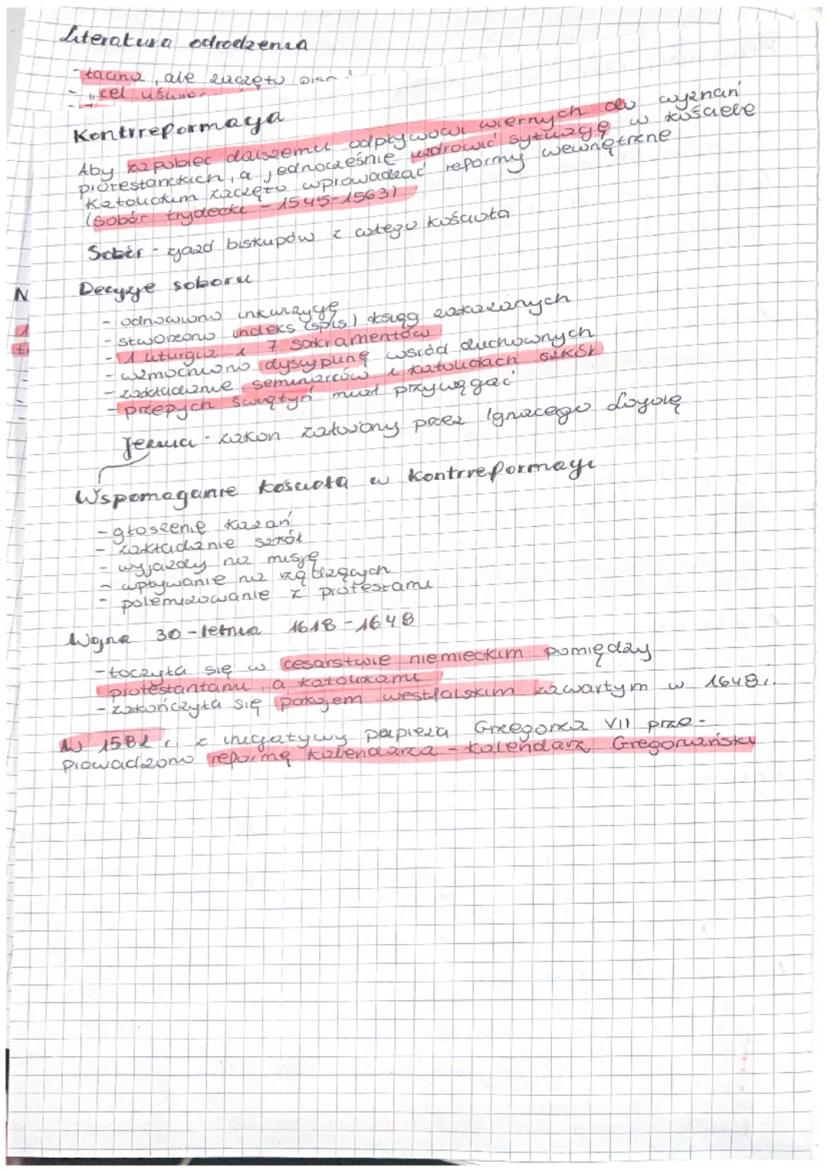 Literatura odrodzenia
- łacina, ale zaczęto
- "cel
Kontrreformacja
Aby zapobiec dalszemu odpływowi wiernych do wyznań
protestanckich, a jednocześnie uzdrowić sytuację w kościele
Katolickim zaczęto wprowadzać reformy wewnętrzne
(Sobór trydecki - 1545-1563)
Sobór - zjazd biskupów z całego kościoła
N
Decyzje soboru
- odnowiono inkwizycję
- stworzono indeks (spis) ksiąg zakazanych
- 1 liturgia i 7 sakramentów
- wzmocniono dyscyplinę wśród duchownych
- zakładanie seminariów i katolickich szkół
- przepych świątyń miał przyciągać
Jezuici - zakon założony przez Ignacego Loyolę
Wspomaganie kościoła w kontrreformacji
- głoszenie kazań
- zakładanie szkół
- wyjazdy na misje
- wpływanie na rządzących
- polemizowanie z protestami
Wojna 30-letnia 1618-1648
- toczyła się w cesarstwie niemieckim pomiędzy
protestantami a katolikami
- zakończyła się pokojem westfalskim zawartym w 1648r.
W 1582 r. z inicjatywy papieża Grzegorza VII prze-
prowadzono reformę kalendarza - kalendarz Gregoriański